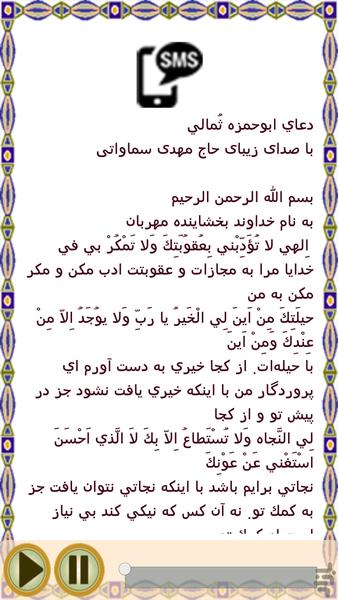 SMS
دعاي ابوحمزه ثُمالي
با صدای زیبای حاج مهدی سماواتی
بسم الله الرحمن الرحيم
به نام خداوند بخشاينده مهربان
اِلهي لا تُؤَدِّبْني بِعُقوُبَتِكَ وَلا تَمْكُرْ بي في
خدايا مرا به مجازات و عقوبتت ادب مكن و مكر
مكن به من
حيلَتِكَ مِنْ اَينَ لِي الْخَيرُ يا رَبِّ وَلا يوُجَدُ اِلاّ مِنْ
عِنْدِكَ وَمِنْ اَينَ
با حيله‌ات. از كجا خيري به دست آورم اي
پروردگار من با اينكه خيري يافت نشود جز در
پيش تو و از كجا
لِي النَّجاه وَلا تُسْتَطاعُ اِلاّ بِكَ لا الَّذي اَحْسَنَ
اسْتَغْني عَنْ عَوْنِكَ
نجاتي برايم باشد با اينكه نجاتي نتوان يافت جز
به كمك تو. نه آن كس كه نيكي كند بي نياز